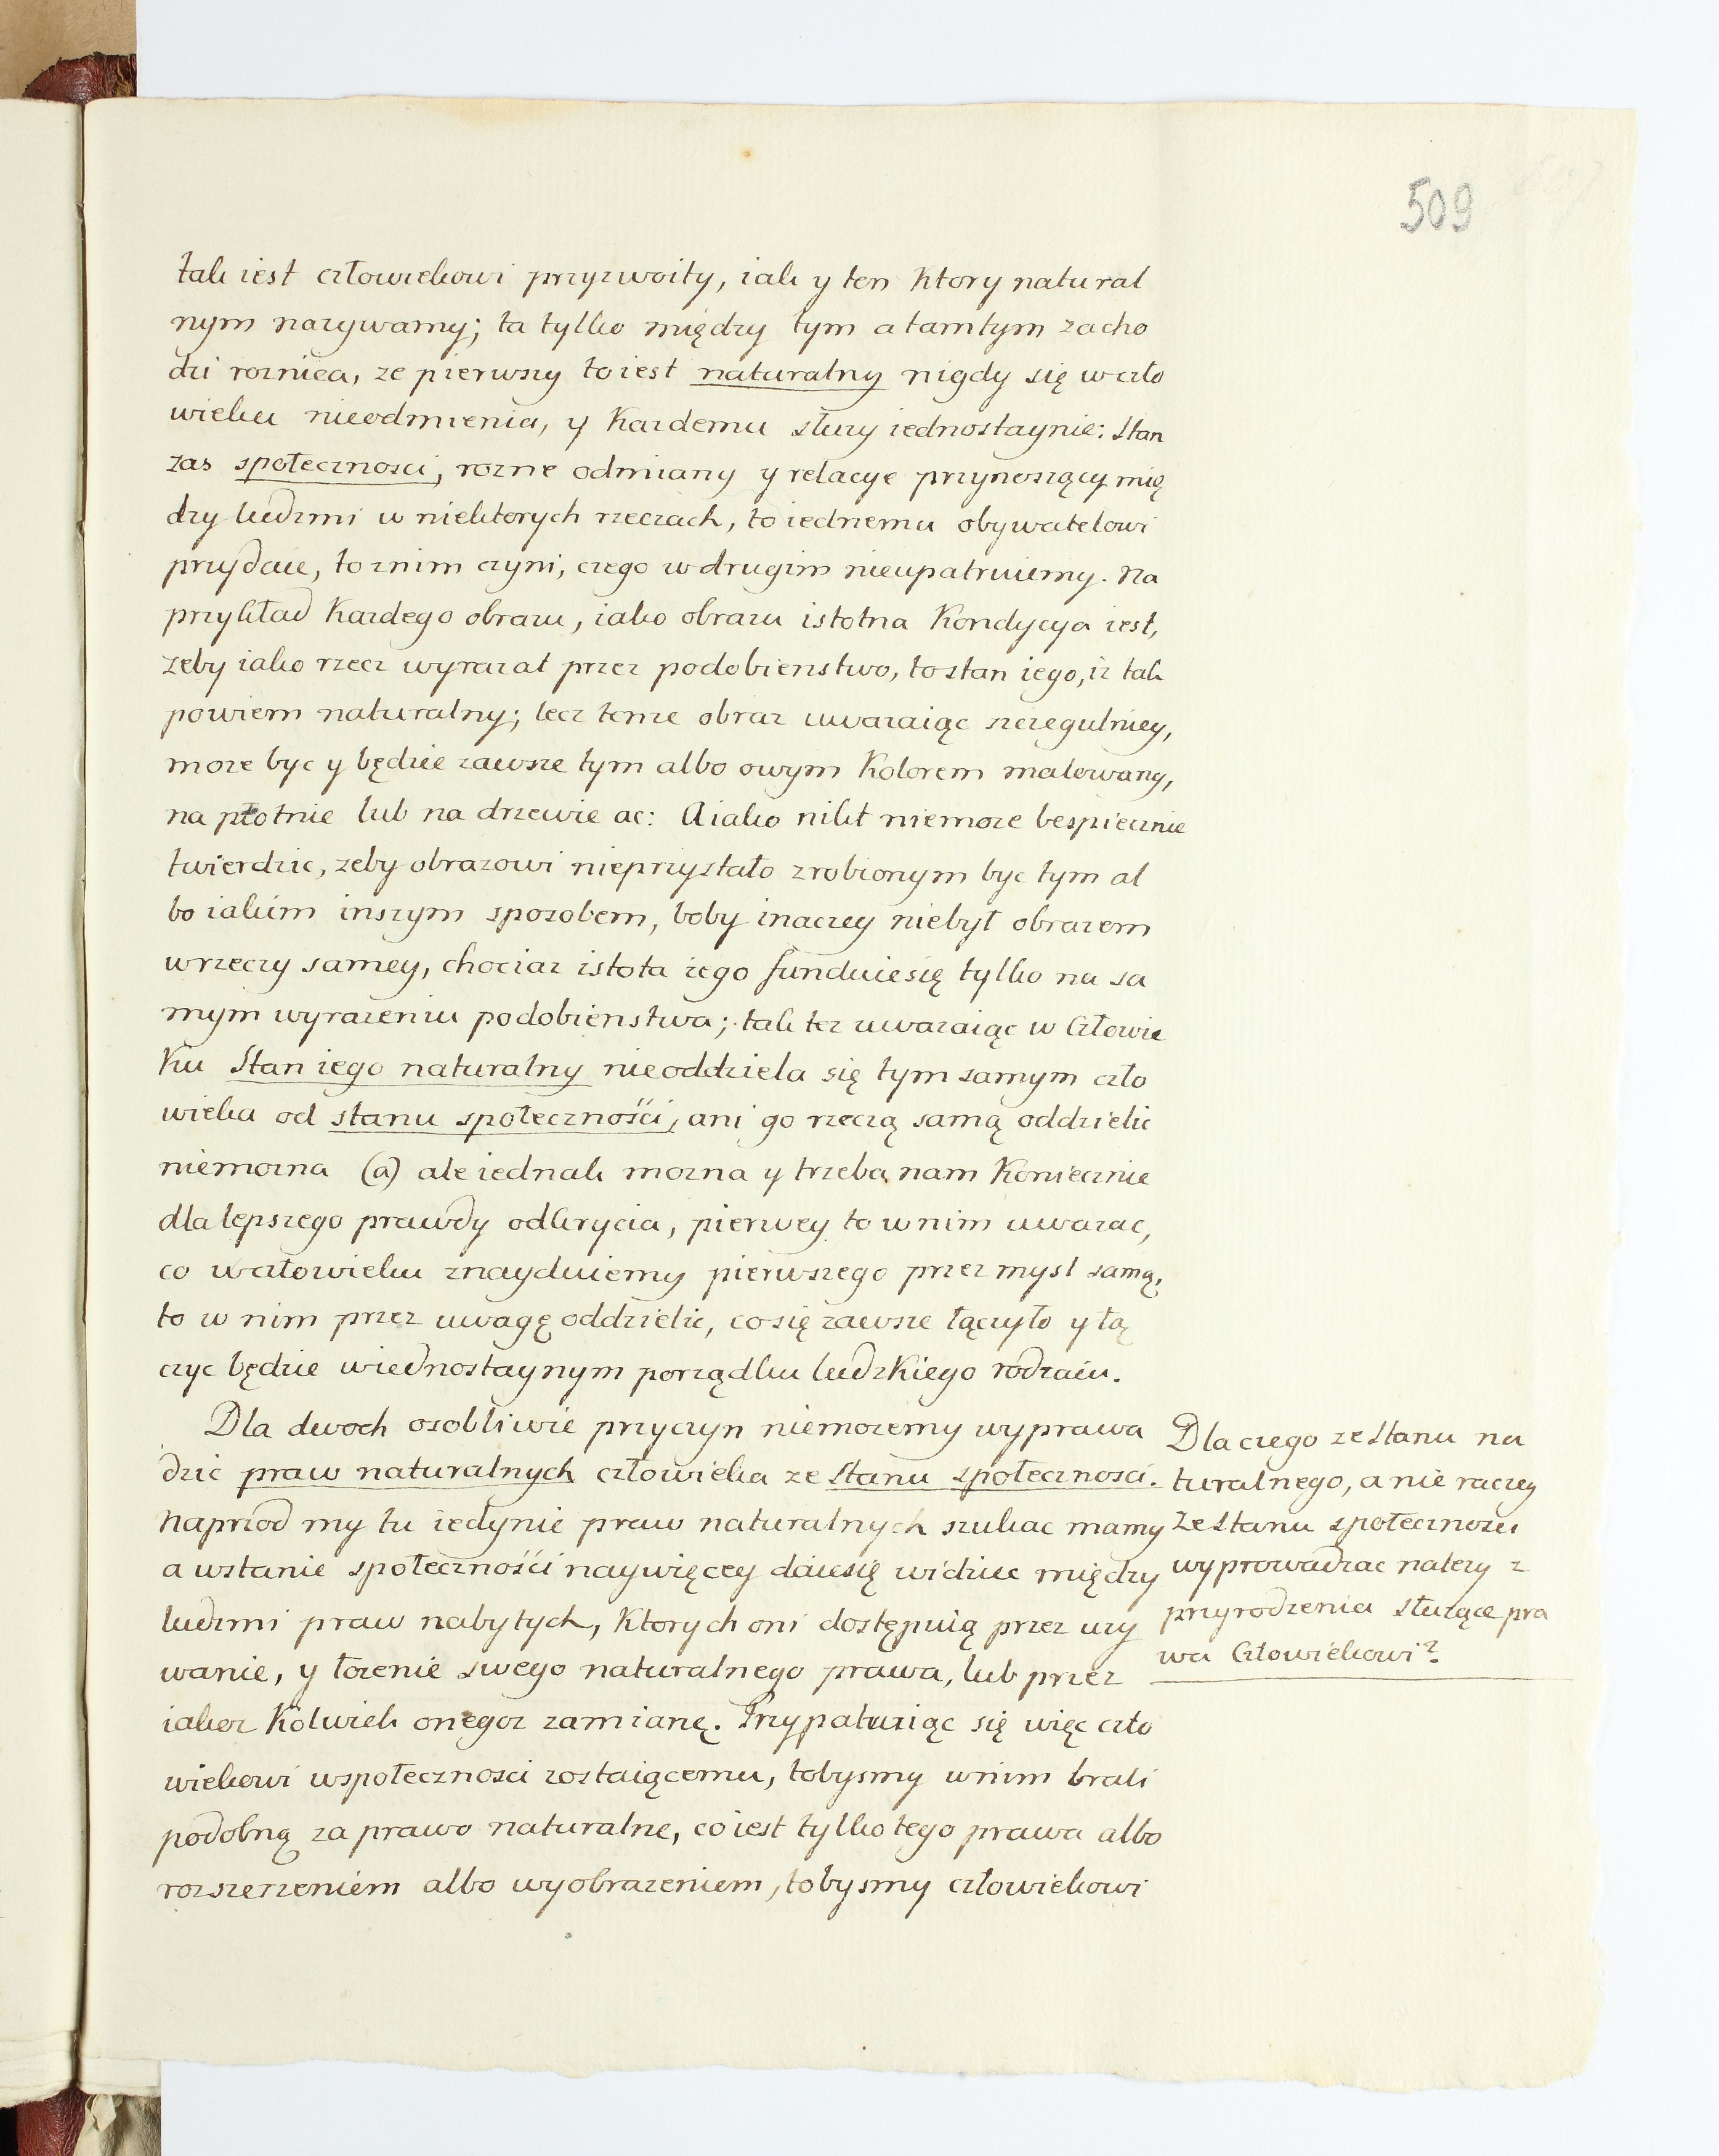 509
tak iest człowiekowi przyzwoity, iak y ten ktory natural
nym nazywamy; ta tylko między tym a tamtym zacho
dzi roznica, ze pierwszy to iest naturalny nigdy się w czło
wieku nieodmienia, y kazdemu słuzy iednostaynie: Stan
zas społecznosci, rozne odmiany y relacye przynoszący mię
dzy ludzmi w niektorych rzeczach, to iednemu obywatelowi
przydaie, to z nim czyni, czego w drugim nieupatruiemy. Na
przykład kazdego obrazu, iako obrazu istotna kondycya iest,
zeby iako rzecz wyrazał przez podobienstwo, to stan iego, iz tak
powiem naturalny; lecz tenze obraz uwazaiąc szczegulniey,
moze byc y będzie zawsze tym albo owym kolorem malowany,
na płotnie lub na drzewie ac: A iako nikt niemoze bespiecznie
twierdzic, zeby obrazowi nieprzystało zrobionym byc tym al
bo iakim inszym sposobem, boby inaczey niebył obrazem
w rzeczy samey, chociaz istota iego funduie się tylko na sa
mym wyrazeniu podobienstwa; tak tez uwazaiąc w Człowie
ku Stan iego naturalny nieoddziela się tym samym czło
wieka od stanu społeczności, ani go rzeczą samą oddzielic
niemozna (a) ale iednak mozna y trzeba nam koniecznie
dla lepszego prawdy odkrycia, pierwey to w nim uwazac,
co w człowieku znayduiemy pierwszego przez mysl samą,
to w nim przez uwagę oddzielic, co się zawsze łączyło y łą
czyc będzie w iednostaynym porządku ludzkiego rodzaiu.
Dla dwoch osobliwie przyczyn niemozemy wyprawa
dzic praw naturalnych człowieka ze stanu społecznosci.
Naprzod my tu iedynie praw naturalnych szukac mamy
a w stanie społeczności naywięcey daie się widziec między
ludzmi praw nabytych, ktorych oni dostępuią przez uzy
wanie, y łozenie swego naturalnego prawa, lub przez
iakoz kolwiek onegoz zamianę. Przypatuiąc się więc czło
wiekowi w społecznosci zostaiącemu, tobysmy w nim brali
podobną za prawo naturalne, co iest tylko tego prawa albo
rozszerzeniem albo wyobrazeniem, tobysmy człowiekowi
Dla czego ze stanu na
turalnego, a nie raczey
ze stanu społecznosci
wyprowadzac nalezy z
przyrodzenia służące pra
wa Człowiekowi?